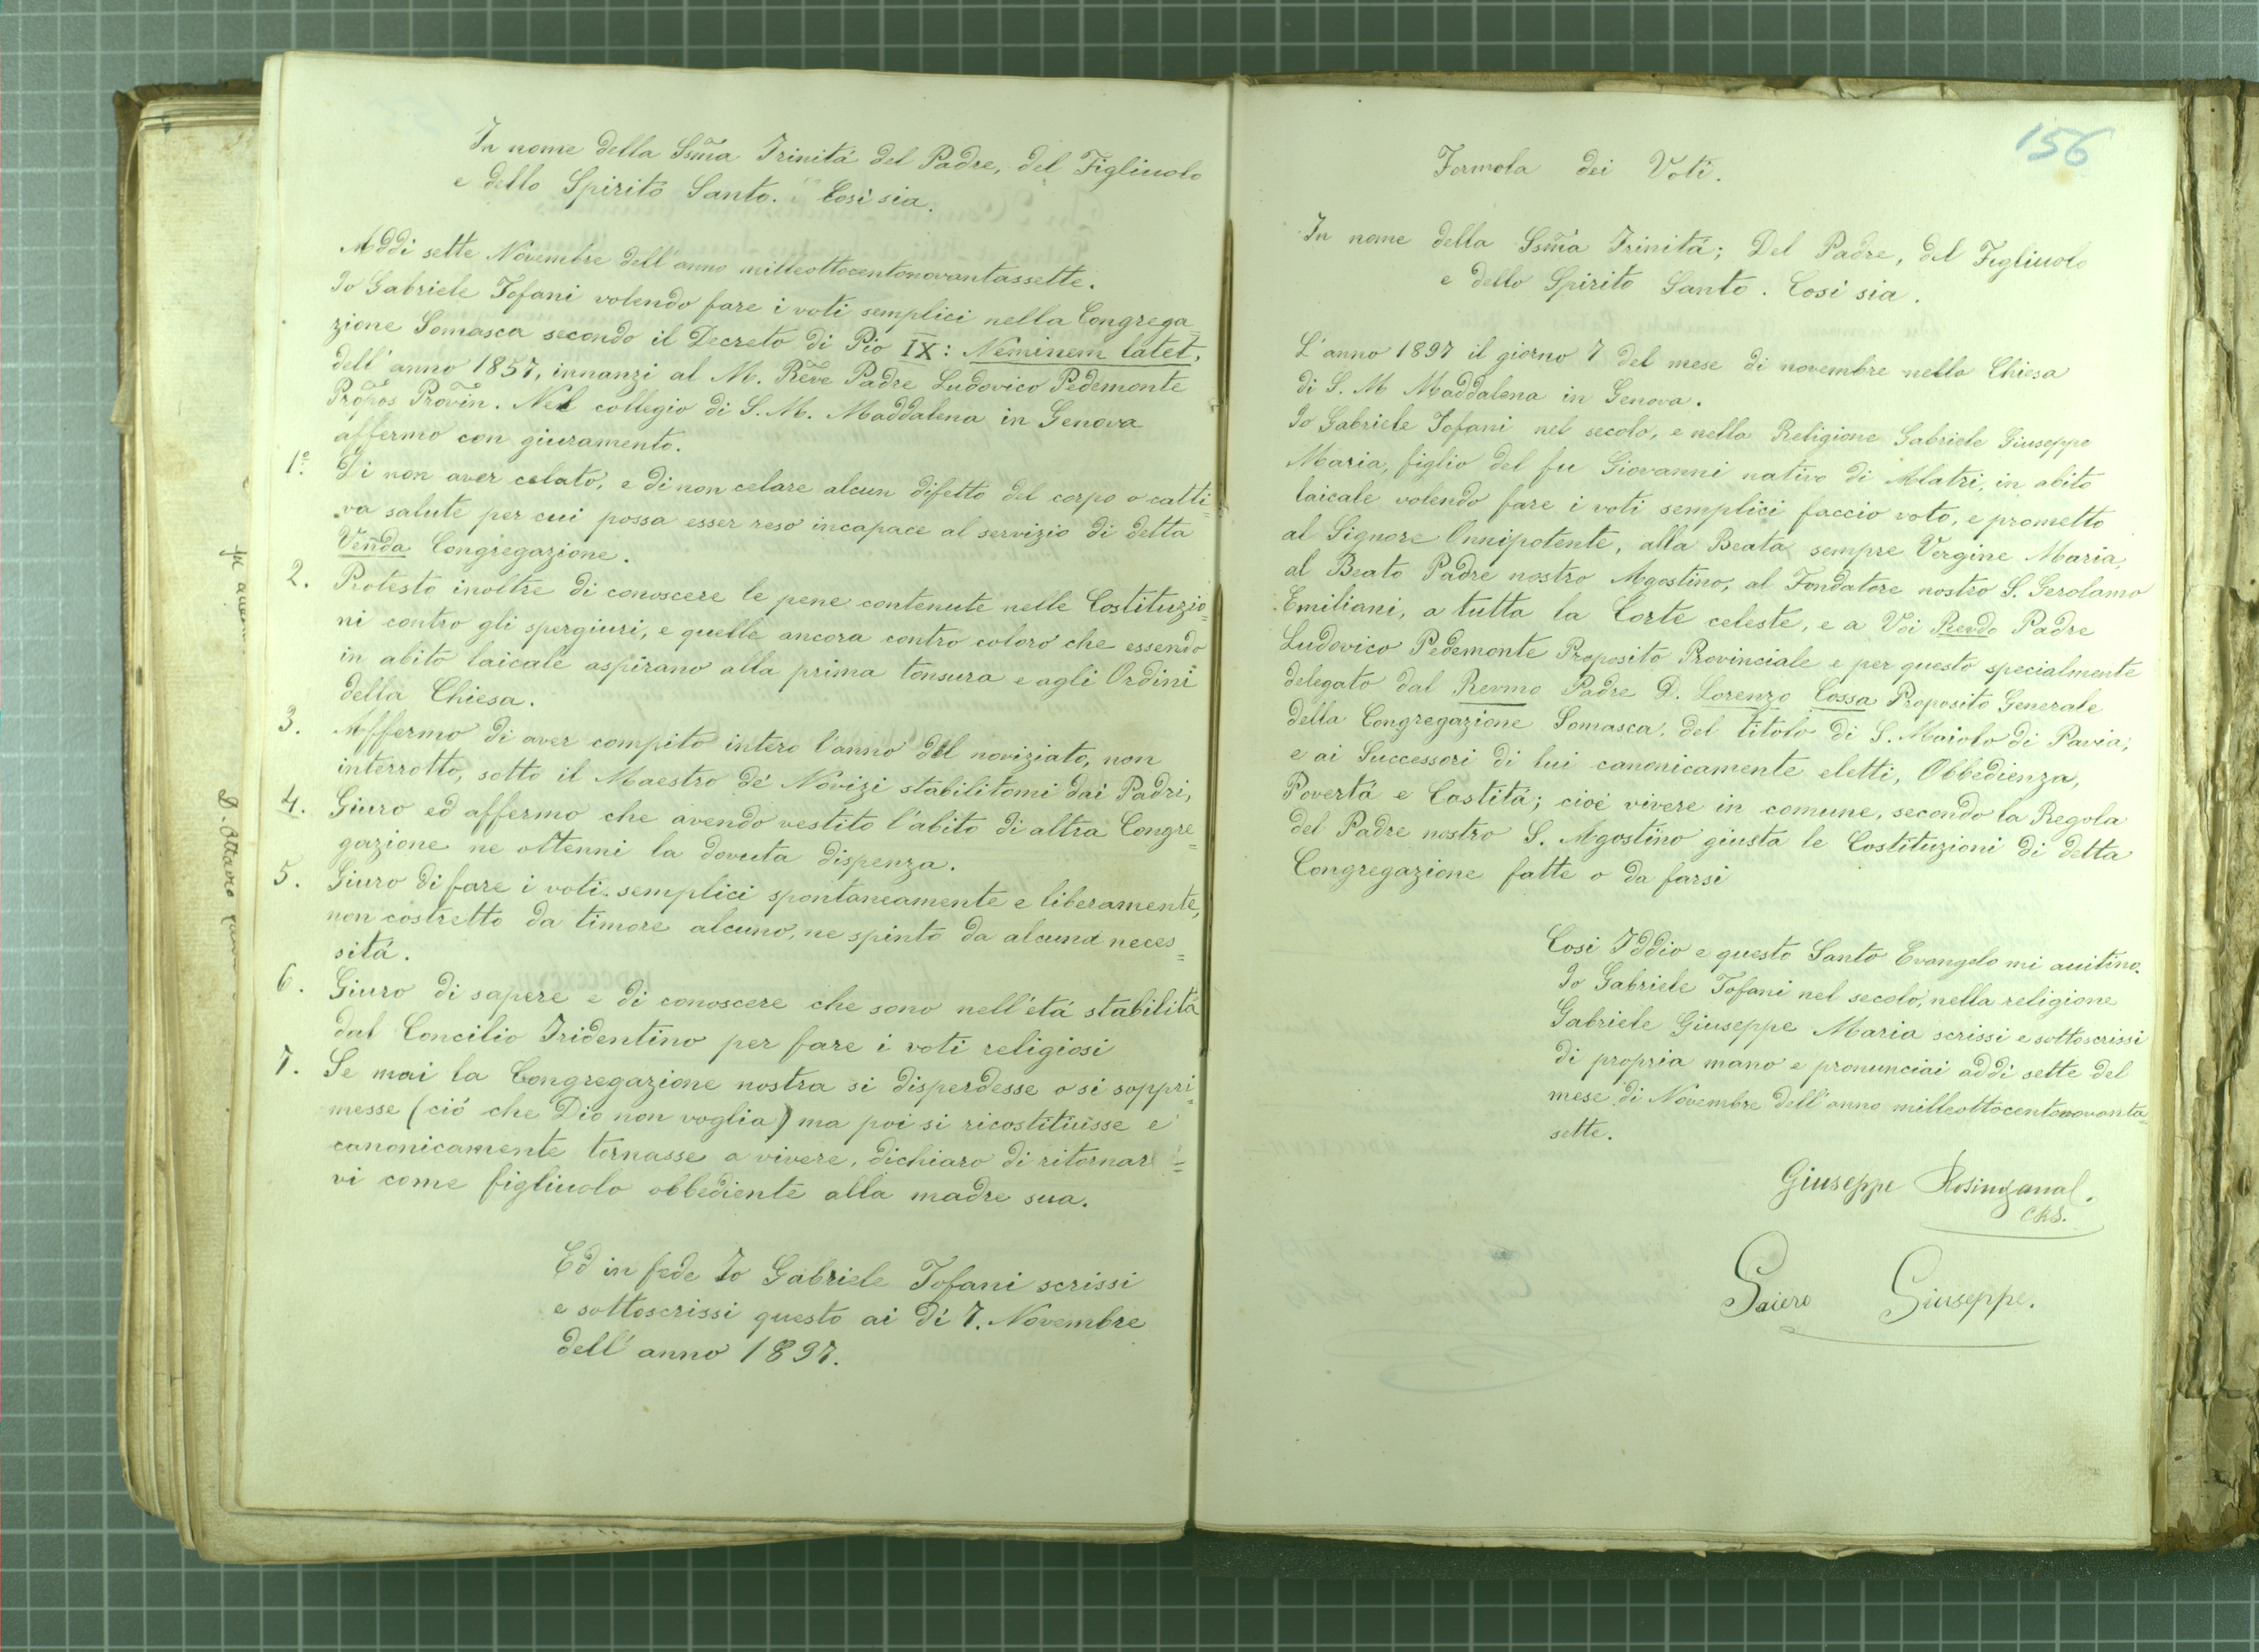 In nome della Ssm̃a Trinitá del Padre, del Figliuolo
e dello Spirito Santo. Cosi sia.
Addi sette Novembre dell'anno milleottocentonovantassette.
Io Gabriele Tofani volendo fare i voti semplici nella Congrega=
zione Somasca secondo il Decreto di Pio IX: Neminem latet,
dell'anno 1857, innanzi al M. Reve Padre Ludovico Pedemonte
Propos Provin. Nel collegio di S. M. Maddalena in Genova
affermo con giuramento.
1º. Di non aver celato, e di non celare alcun difetto del corpo o catti=
va salute per cui possa esser reso incapace al servizio di detta
Venda Congregazione.
2. Protesto inoltre di conoscere le pene contenute nelle Costituzio=
ni contro gli spergiuri, e quelle ancora contro coloro che essendo
in abito laicale aspirano alla prima tonsura e agli Ordini
della Chiesa.
3. Affermo di aver compito intero l'anno del noviziato, non
interrotto, sotto il Maestro de' Novizi stabilitomi dai Padri,
4. Giuro ed affermo che avendo vestito l'abito di altra Congre=
gazione ne ottenni la dovuta dispenza.
5. Giuro di fare i voti semplici spontaneamente e liberamente,
non costretto da timore alcuno, ne spinto da alcuna neces=
sitá.
6. Giuro di sapere e di conoscere che sono nell'etá stabilita
dal Concilio Tridentino per fare i voti religiosi
7. Se mai la Congregazione nostra si disperdesse o si soppri=
messe (ció che Dio non voglia) ma poi si ricostituisse e
canonicamente tornasse a vivere, dichiaro di ritornar=
vi come figliuolo obbediente alla madre sua.
Ed in fede Io Gabriele Tofani scrissi
e sottoscrissi questo ai dí 7. Novembre
dell'anno 1897.
156
Formola dei Voti.
In nome della Ssm̃a Trinitá; Del Padre, del Figliuolo
e dello Spirito Santo. Cosi sia.
L'anno 1897 il giorno 7 del mese di novembre nella Chiesa
di S. M Maddalena in Genova.
Io Gabriele Tofani nel secolo, e nella Religione Gabriele Giuseppe
Maria, figlio del fu Giovanni nativo di Alatri, in abito
laicale volendo fare i voti semplici faccio voto, e prometto
al Signore Onnipotente, alla Beata sempre Vergine Maria,
al Beato Padre nostro Agostino, al Fondatore nostro S. Gerolamo
Emiliani, a tutta la Corte celeste, e a Voi Revdo Padre
Ludovico Pedemonte Proposito Provinciale e per questo specialmente
delegato dal Revmo Padre D. Lorenzo Cossa Proposito Generale
della Congregazione Somasca, del titolo di S. Maiolo di Pavia,
e ai Successori di lui canonicamente eletti, Obbedienza,
Povertá e Castitá; cioé vivere in comune, secondo la Regola
del Padre nostro S. Agostino giusta le Costituzioni di detta
Congregazione fatte o da farsi
Cosi Iddio e questo Santo Evangelo mi auitino.
Io Gabriele Tofani nel secolo, nella religione
Gabriele Giuseppe Maria scrissi e sottoscrissi
di propria mano e pronunciai addi sette del
mese di Novembre dell'anno milleottocentonovanta=
sette.
Giuseppe
CRS.
Giuseppe.